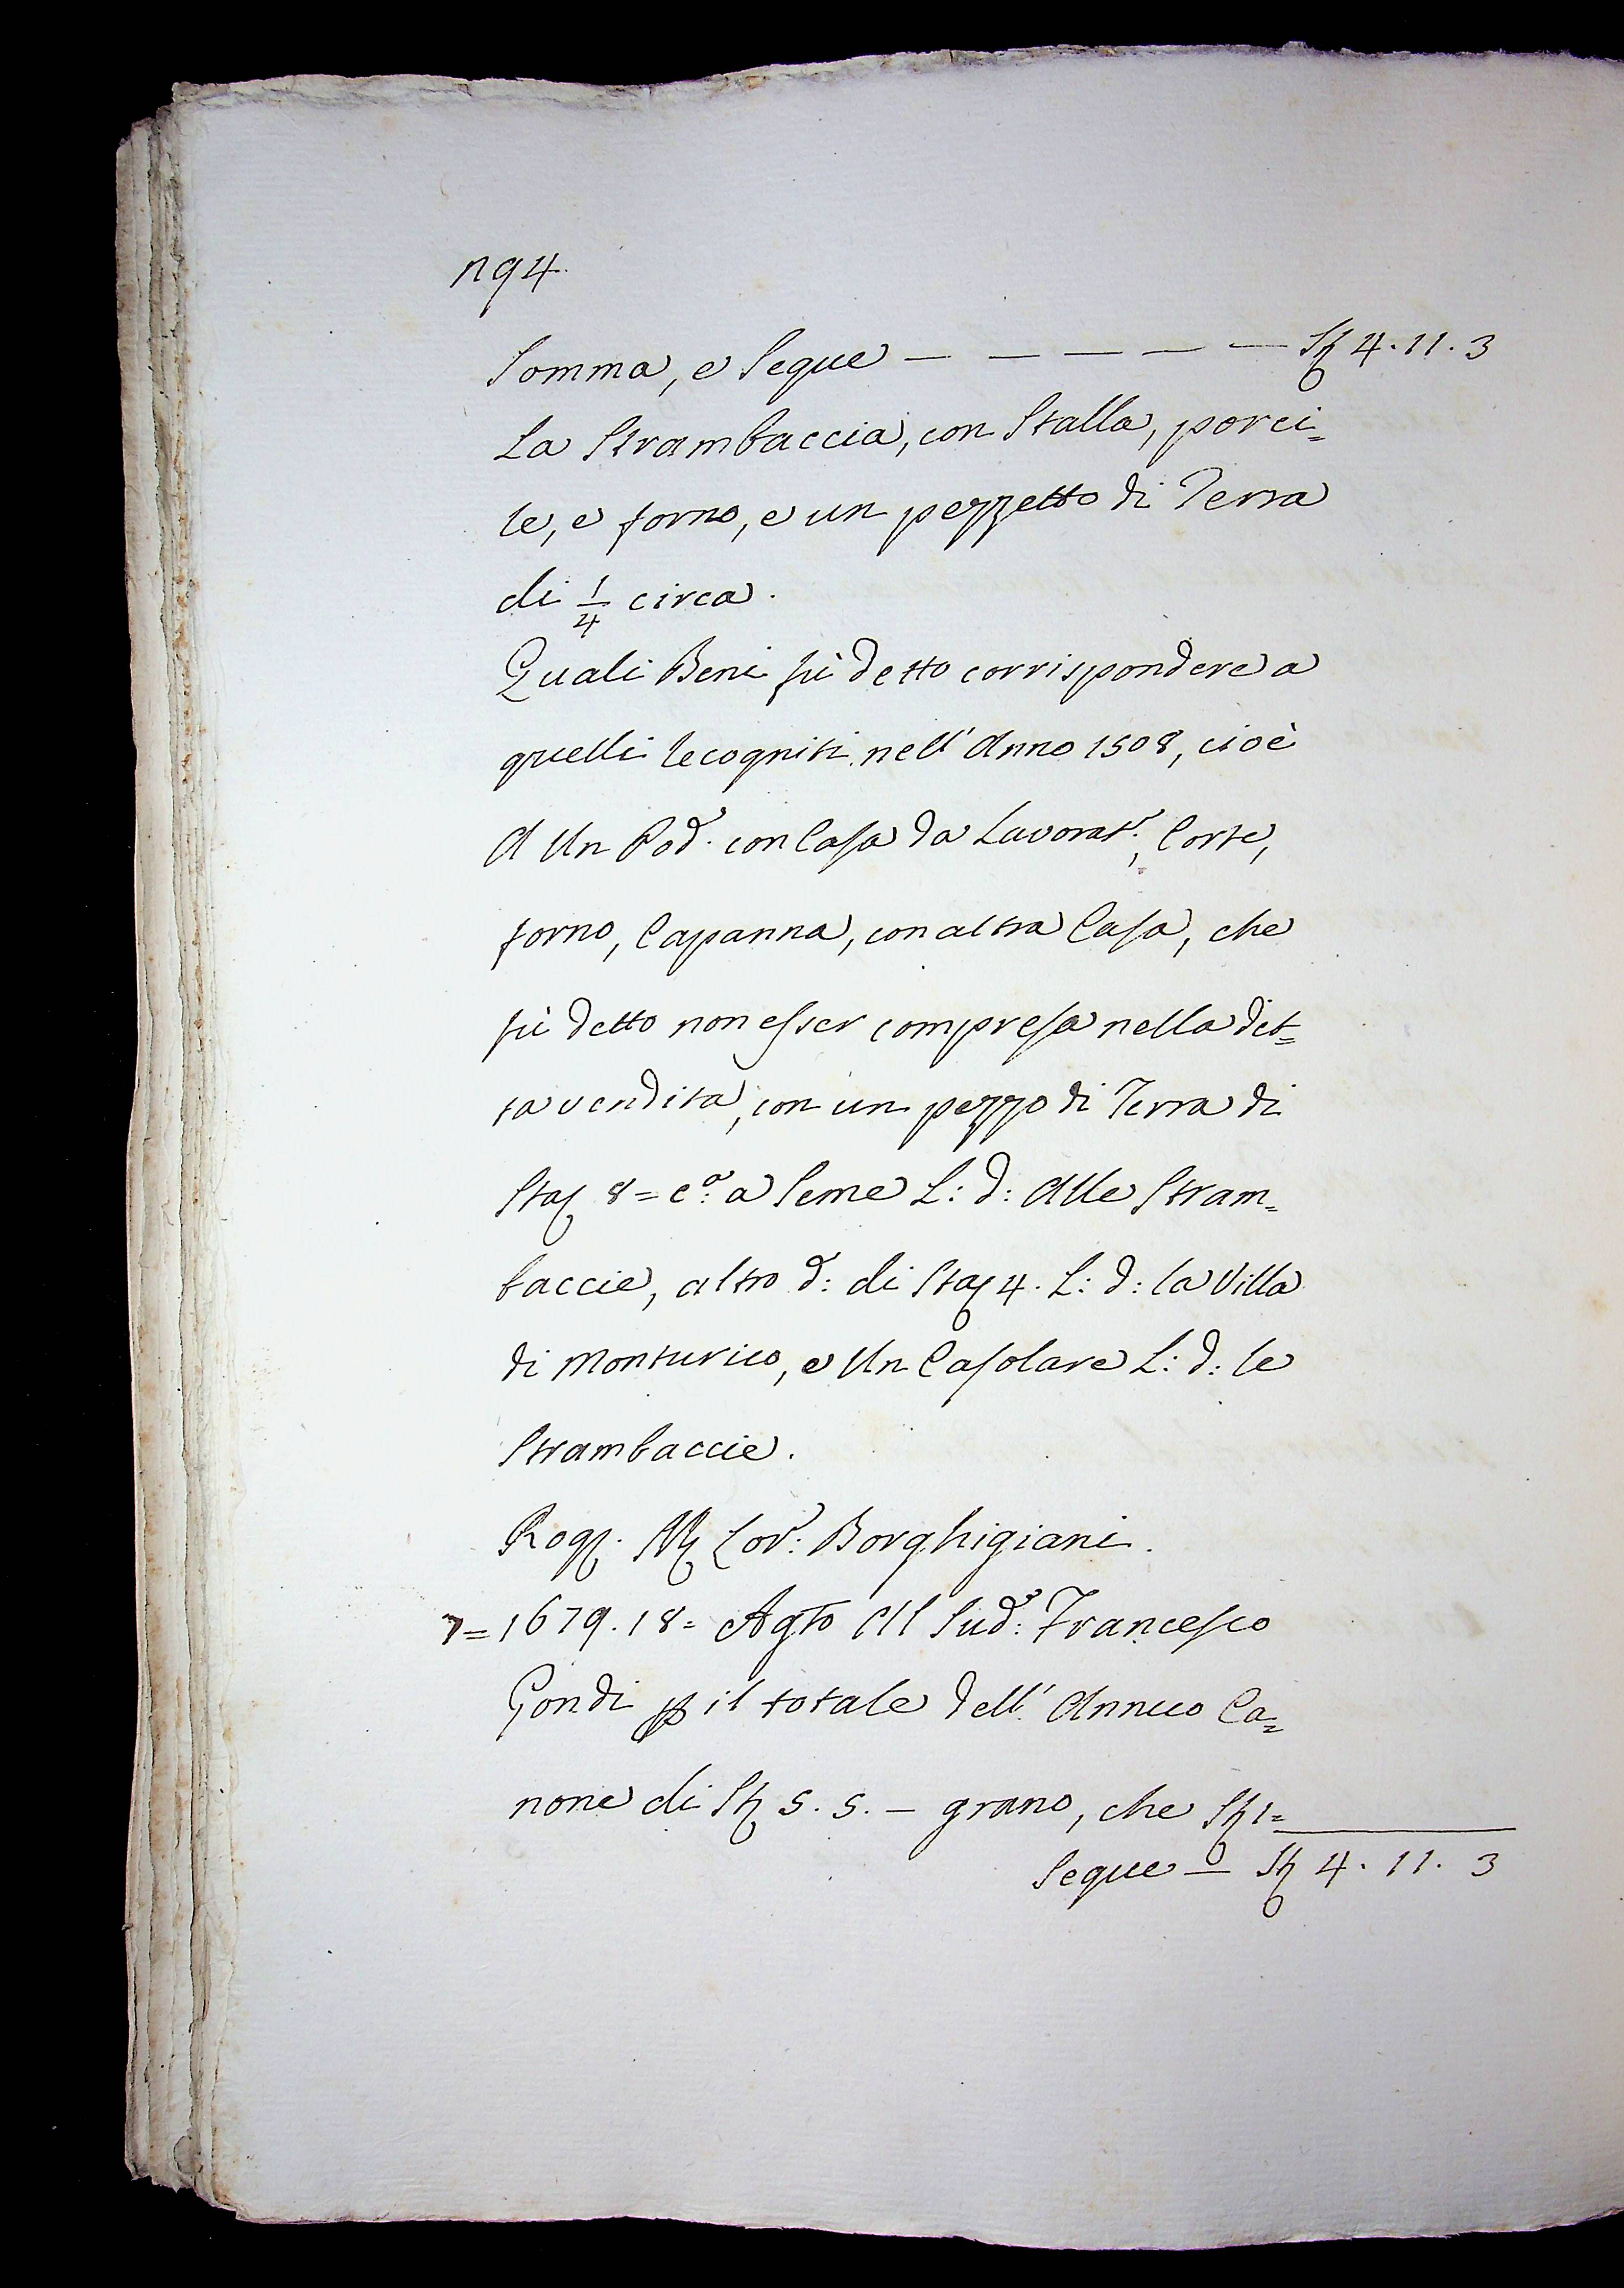 194.
Somma, e Segue — — — — — St 4. 11. 3
La Strambaccia, con Stalla, porci=
le, e forno, e un pezzetto di Terra
di 1/4 circa.
Quali Beni fù detto corrispondere a
quelli recogniti nell' Anno 1508, cioè
A Un Pod.e con Casa da Lavorat.e, Corte,
forno, Capanna, con altra Casa, che
fù detto non esser compresa nella det=
ta vendita, con un pezzo di Terra di
Sta 8= c.a a Seme L: d: Alle Stram=
baccie, altro d: di Sta 4. L: d: la Villa
di Monturico, e Un Casolare L: d: le
Strambaccie.
Rog. Lor: Borghigiani.
7= 1679. 18= Agto Al Sud.o: Francesco
Gondi p il totale dell' Annuo Ca=
none di St 5. 5. — grano, che St 1=
Segue — St 4. 11. 3